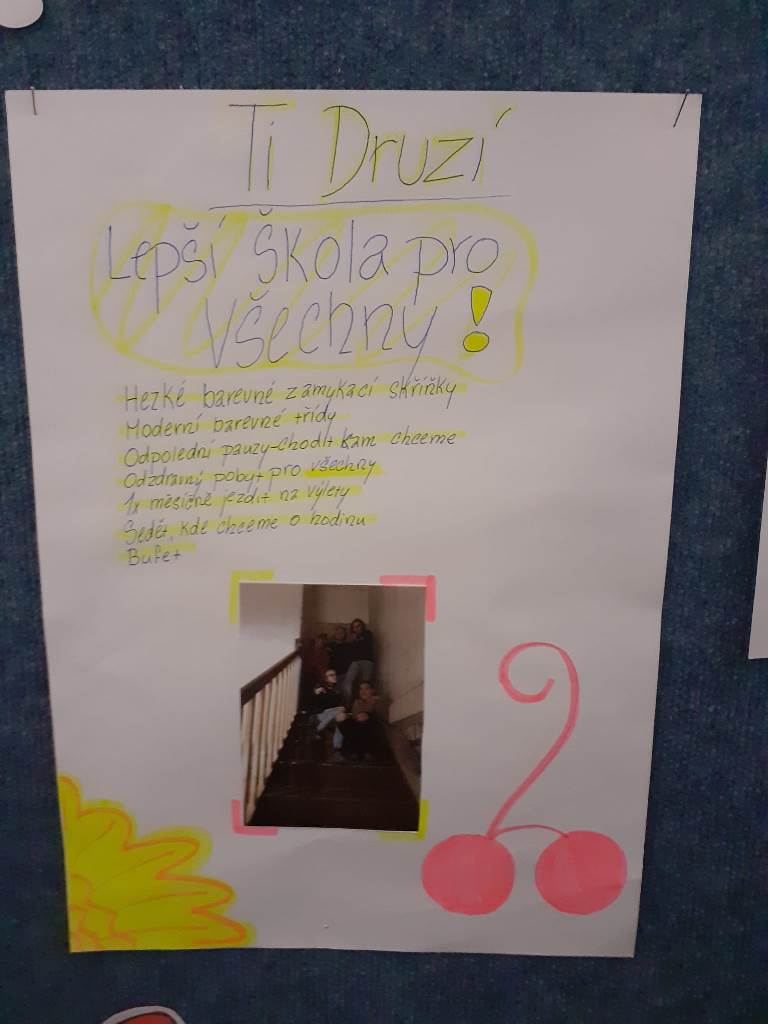 Ti Druzí
Lepší škola pro
všechny!
Hezké barevné zamykací skříňky
Moderní barevné třídy
Odpolední pauzy-chodit kam chceme
Odzdravný pobyt pro všechny
1x měsíčně jezdit na výlety
Sedět, kde chceme o hodinu
Bufet